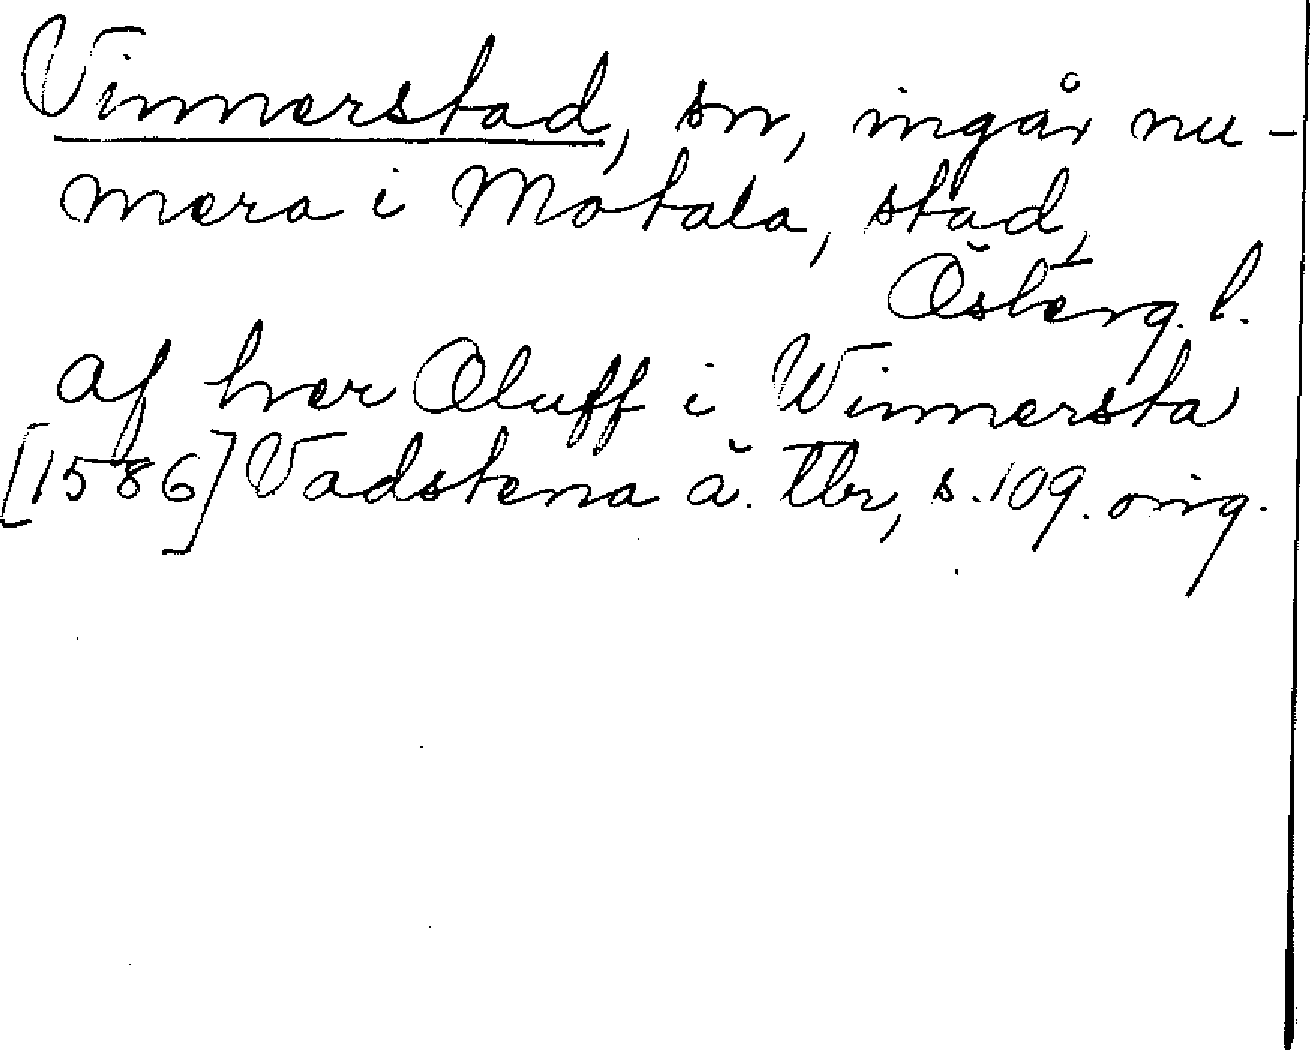 Vinnerstad, sn, ingår nu-
mera i Motala, stad,
Österg. l.
af her Oluff i Winnersta
[1586] Vadstena ä. tbr, s. 109. orig.